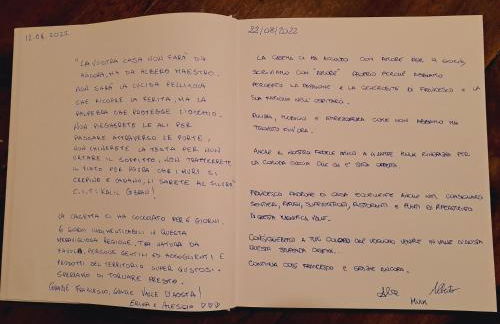 12.08.2022
"LA VOSTRA CASA NON SARÀ UN
ÀNCORA, MA UN ALBERO MAESTRO.
NON SARÀ LA LUCIDA PELLICOLA
CHE RICOPRE LA FERITA, MA LA
PALPEBRA CHE PROTEGGE L'OCCHIO.
NON PIEGHERETE LE ALI PER
PASSARE ATTRAVERSO LE PORTE,
NON CHINERETE LA TESTA PER NON
URTARE IL SOFFITTO, NON TRATTERRETE
IL FIATO PER PAURA CHE I MURI SI
CREPINO E CADANO,
CIT. KALIL GIBRAN!
LA CASETTA CI HA COCCOLATO PER 6 GIORNI,
6 GIORNI INDIMENTICABILI IN QUESTA
MERAVIGLIOSA REGIONE, TRA NATURA DA
FAVOLA, PERSONE GENTILI ED ACCOGLIENTI E
PRODOTTI DEL TERRITORIO SUPER GUSTOSI.
SPERIAMO DI TORNARE PRESTO.
GRAZIE FRANCESCO, GRAZIE VALLE D'AOSTA!
E ALESSIO ♡♡♡
22/08/2022
LA CASETTA CI HA ACCOLTO CON AMORE PER 9 GIORNI,
SCRIVIAMO CON "AMORE" PROPRIO PERCHÈ ABBIAMO
PERCEPITO LA PASSIONE E LA DI FRANCESCO E LA
SUA FAMIGLIA NELL'OSPITARCI.
PULITA, MODERNA E ATTREZZATA COME NON ABBIAMO MAI
TROVATO FIN'ORA.
ANCHE IL NOSTRO FEDELE AMICO A 4 ZAMPE MUK RINGRAZIA PER
LA COMODA CUCCIA CHE GLI E' STATA OFFERTA.
FRANCESCO PADRONE DI CASA ECCELLENTE ANCHE NEL CONSIGLIARCI
SENTIERI, RIFUGI, SUPERMERCATI, RISTORANTI E PUNTI DI RIFERIMENTO
DI QUESTA MAGNIFICA VALLE.
CONSIGLIEREMO A TUTTI COLORO CHE VOGLIONO VENIRE IN VALLE D'AOSTA
QUESTA STUPENDA CASETTA.
CONTINUA COSI FRANCESCO E GRAZIE ANCORA.
MUK